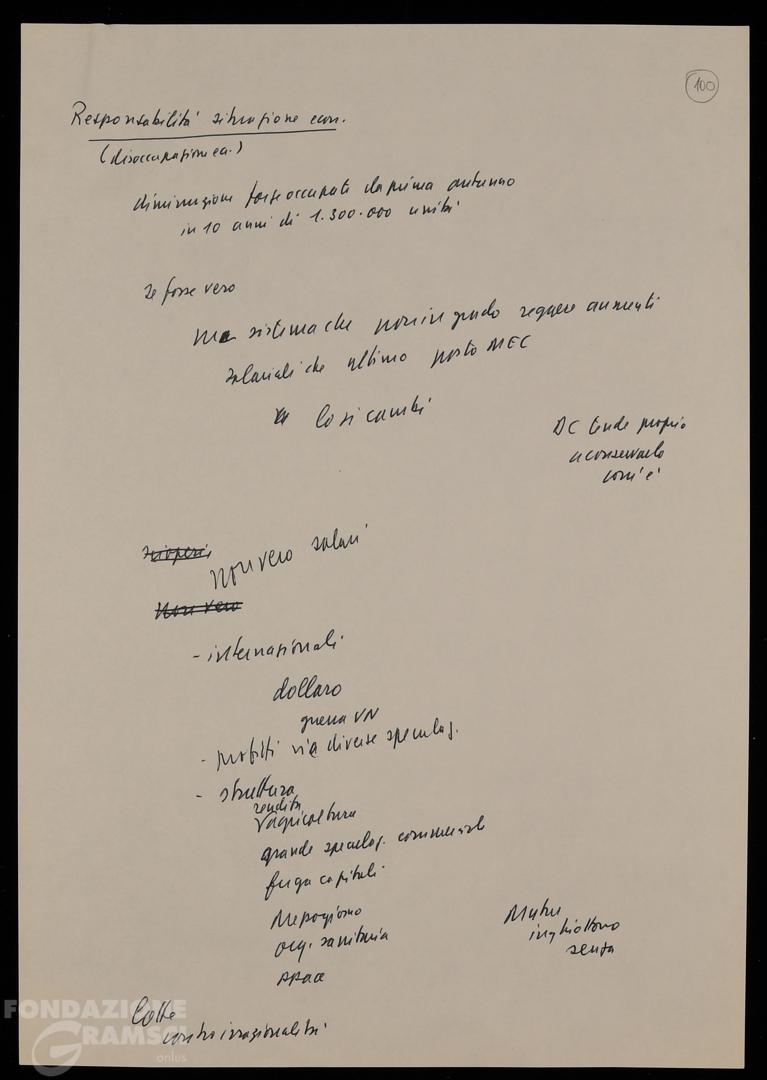 100
Responsabilità situazione econ.
(disoccupazione ecc.)
diminuzione forze occupati da prima autunno
in 10 anni di 1.300.000 unità
se fosse vero
ma sistema che non in grado reggere aumenti
salariali che ultimo posto MEC
lo si cambi
DC tende proprio
a conservarlo
com'è
scioperi
non vero salari
Non vero
- internazionali
dollaro
guerra VN
- profitti via diverse speculaz.
- struttura
rendita
agricoltura
grande speculaz. commerciale
fuga capitali
Mezzogiorno
org. sanitaria
Mutue
inghiottono
senza
Lotte
contro irrazionalità
FONDAZIONE
GRAMSCI
onlus